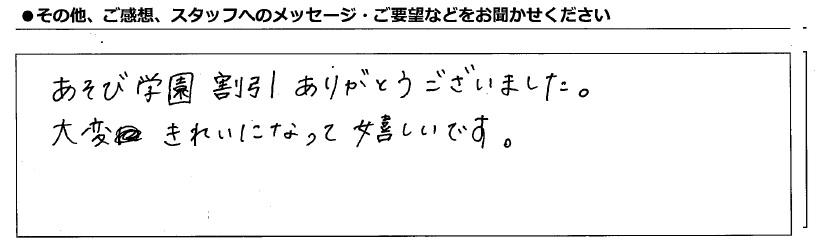 ●その他、ご感想、スタッフへのメッセージ・ご要望などをお聞かせください
あそび学園 割引 ありがとうございました。
大変 きれいになって嬉しいです。